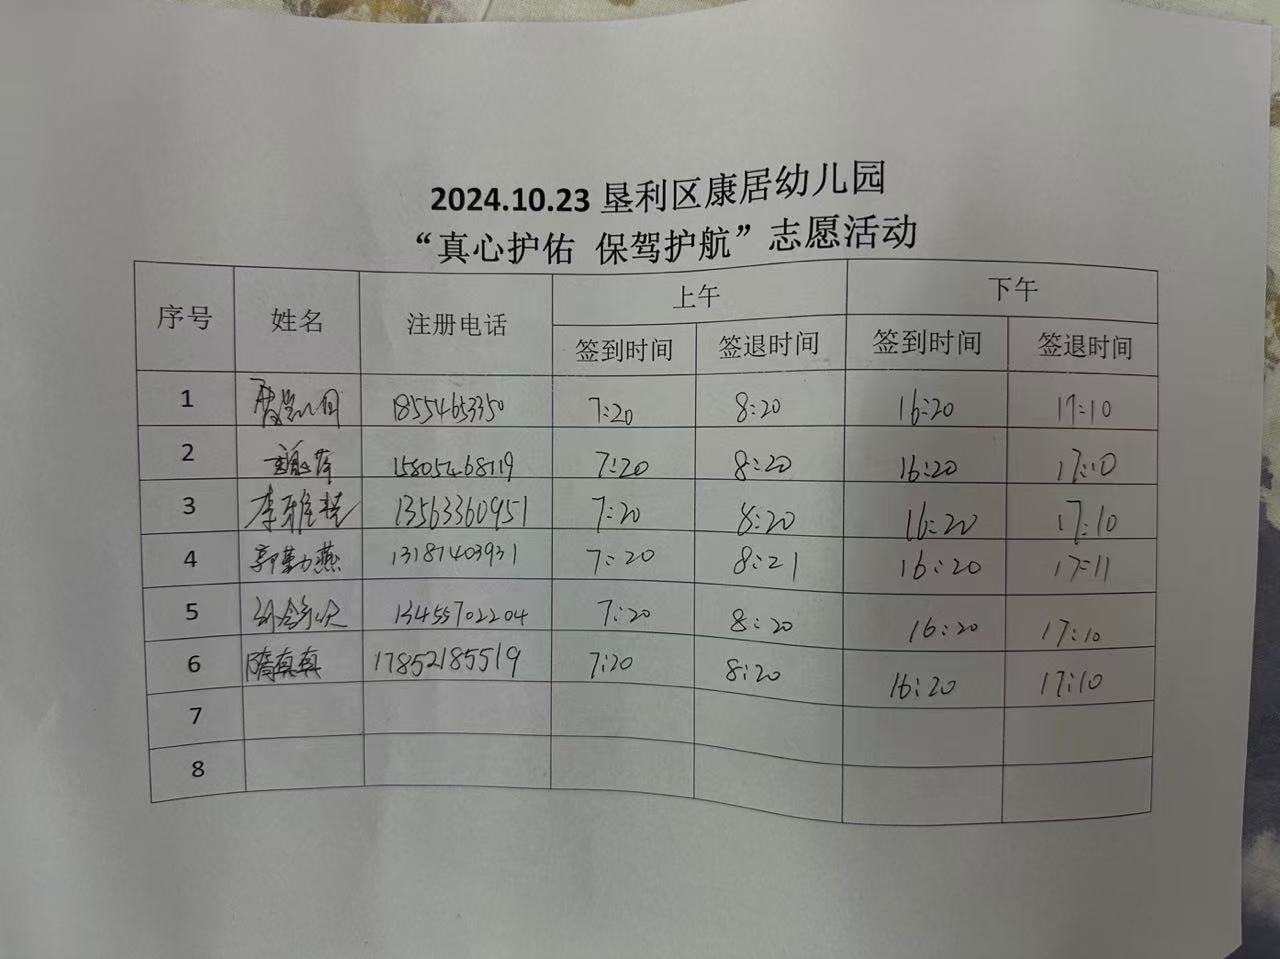 2024.10.23 垦利区康居幼儿园
“真心护佑 保驾护航”志愿活动
序号 姓名 注册电话 上午 下午
签到时间 签退时间 签到时间 签退时间
1 18554653350 7:20 8:20 16:20 17:10
2 15805468119 7:20 8:20 16:20 17:10
3 李雅琪 13563360951 7:20 8:20 16:20 17:10
4 郭勤燕 13181403931 7:20 8:21 16:20 17:11
5 13455702204 7:20 8:20 16:20 17:10
6 隋真真 17852185519 7:20 8:20 16:20 17:10
7
8